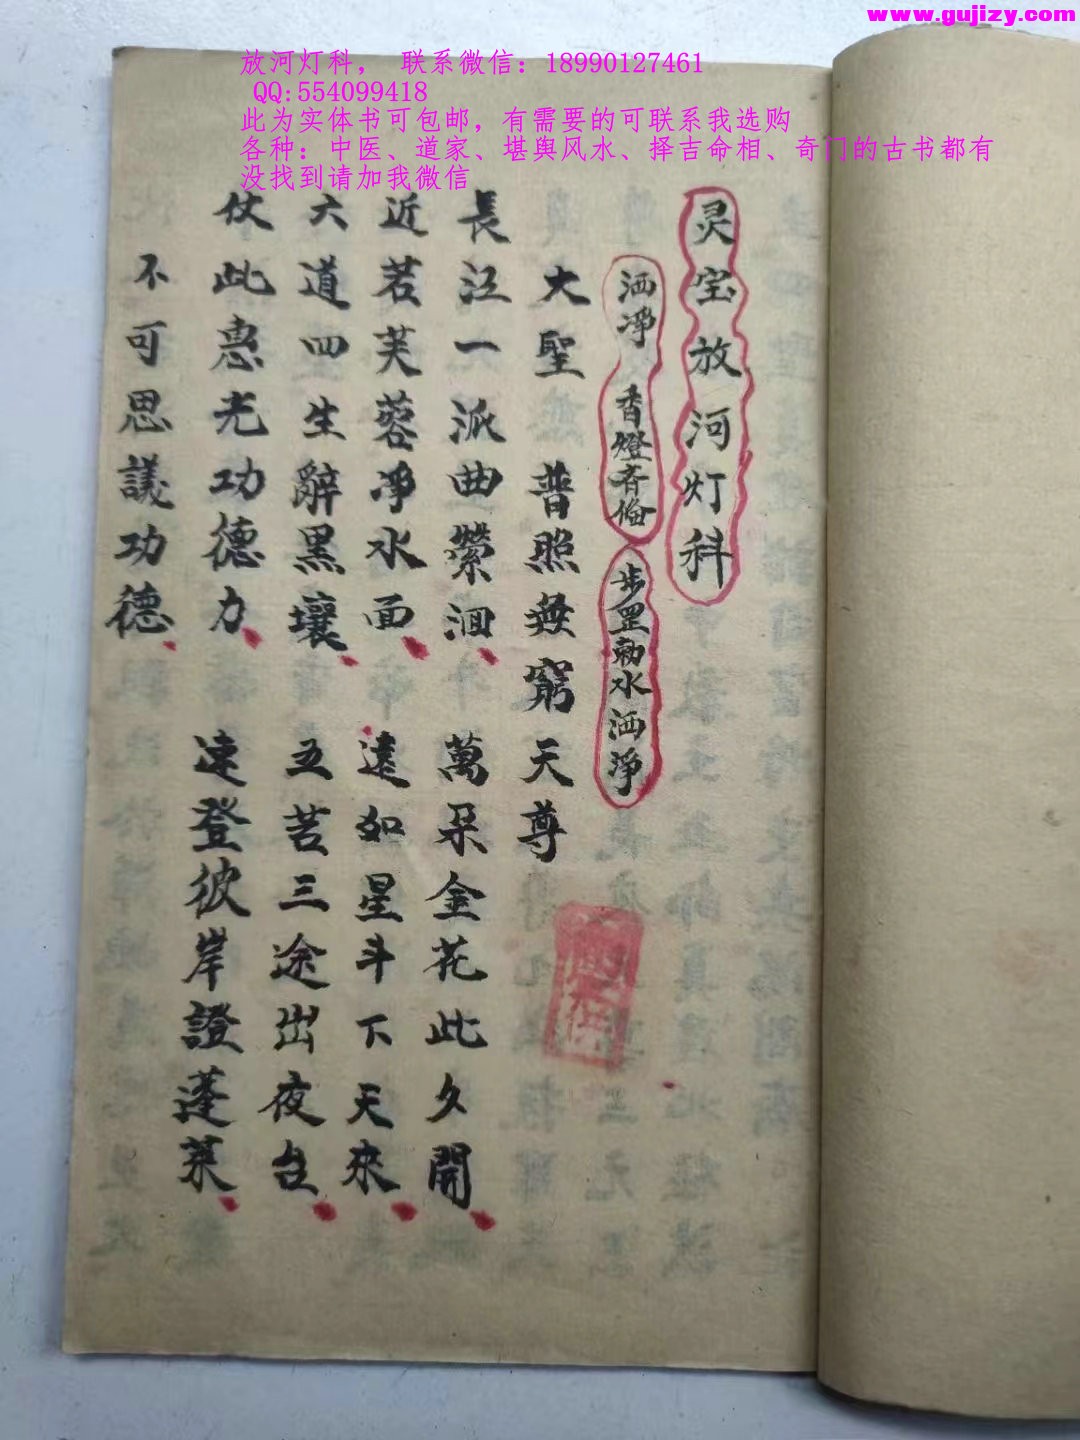 www.gujizy.com
放河灯科， 联系微信：18990127461
QQ:554099418
此为实体书可包邮，有需要的可联系我选购
各种：中医、道家、堪舆风水、择吉命相、奇门的古书都有
没找到请加我微信
灵宝放河灯科
洒净 香燈斉俻 步罡勅水洒净
大聖 普照無窮天尊
長江一派曲縈洄 萬朵金花此夕開
近若芙蓉净水面 遠如星斗下天來
六道四生辭黑壤 五苦三途出夜台
仗此惠光功德力 速登彼岸證蓬萊
不可思議功德